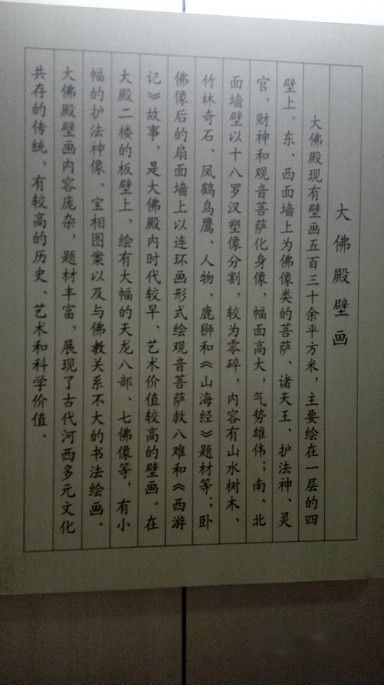 大佛殿壁画
大佛殿现有壁画五百三十余平方米，主要绘在一层的四
壁上。东、西面墙上为佛像类的菩萨、诸天王、护法神、灵
宫、财神和观音菩萨化身像，幅面高大，气势雄伟；南、北
面墙壁以十八罗汉塑像分割，较为零碎，内容有山水树木、
竹林奇石、凤鹤鸟鹰、人物、鹿狮和《山海经》题材等；卧
佛像后的扇面墙上以连环画形式绘观音菩萨救八难和《西游
记》故事，是大佛殿内时代较早、艺术价值较高的壁画。在
大殿二楼的板壁上，绘有大幅的天龙八部、七佛像等，有小
幅的护法神像、宝相图案以及与佛教关系不大的书法绘画。
大佛殿壁画内容庞杂，题材丰富，展现了古代河西多元文化
共存的传统，有较高的历史、艺术和科学价值。